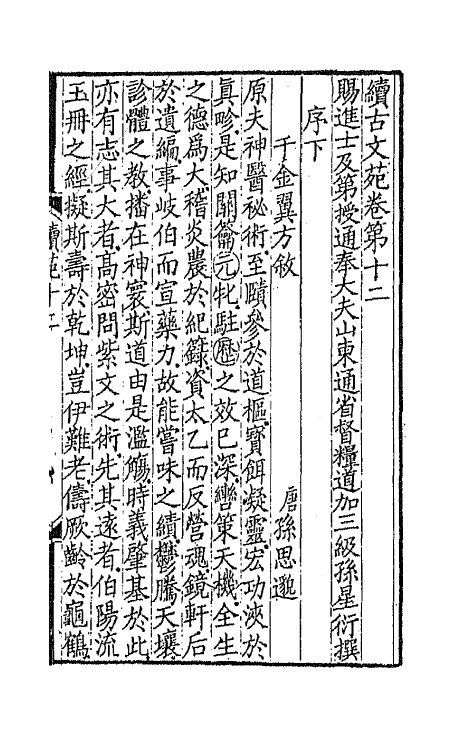 續古文苑卷第十二
賜進士及第授通奉大夫山東通省督糧道加三級孫星衍撰
序下
千金翼方敘 唐孫思邈
原夫神醫祕術至賾參於道樞寶餌凝靈宏功浹於
眞畛是知關籥元牝駐歷之效已深轡策天機全生
之德爲大稽炎農於紀籙資太乙而反營魂鏡軒后
於遺編事岐伯而宣藥力故能嘗味之績鬱騰天壤
診體之教播在神寰斯道由是濫觴時義肇基於此
亦有志其大者高密問紫文之術先其遠者伯陽流
玉冊之經擬斯壽於乾坤豈伊難老儔厥齡於龜鶴
續苑十二